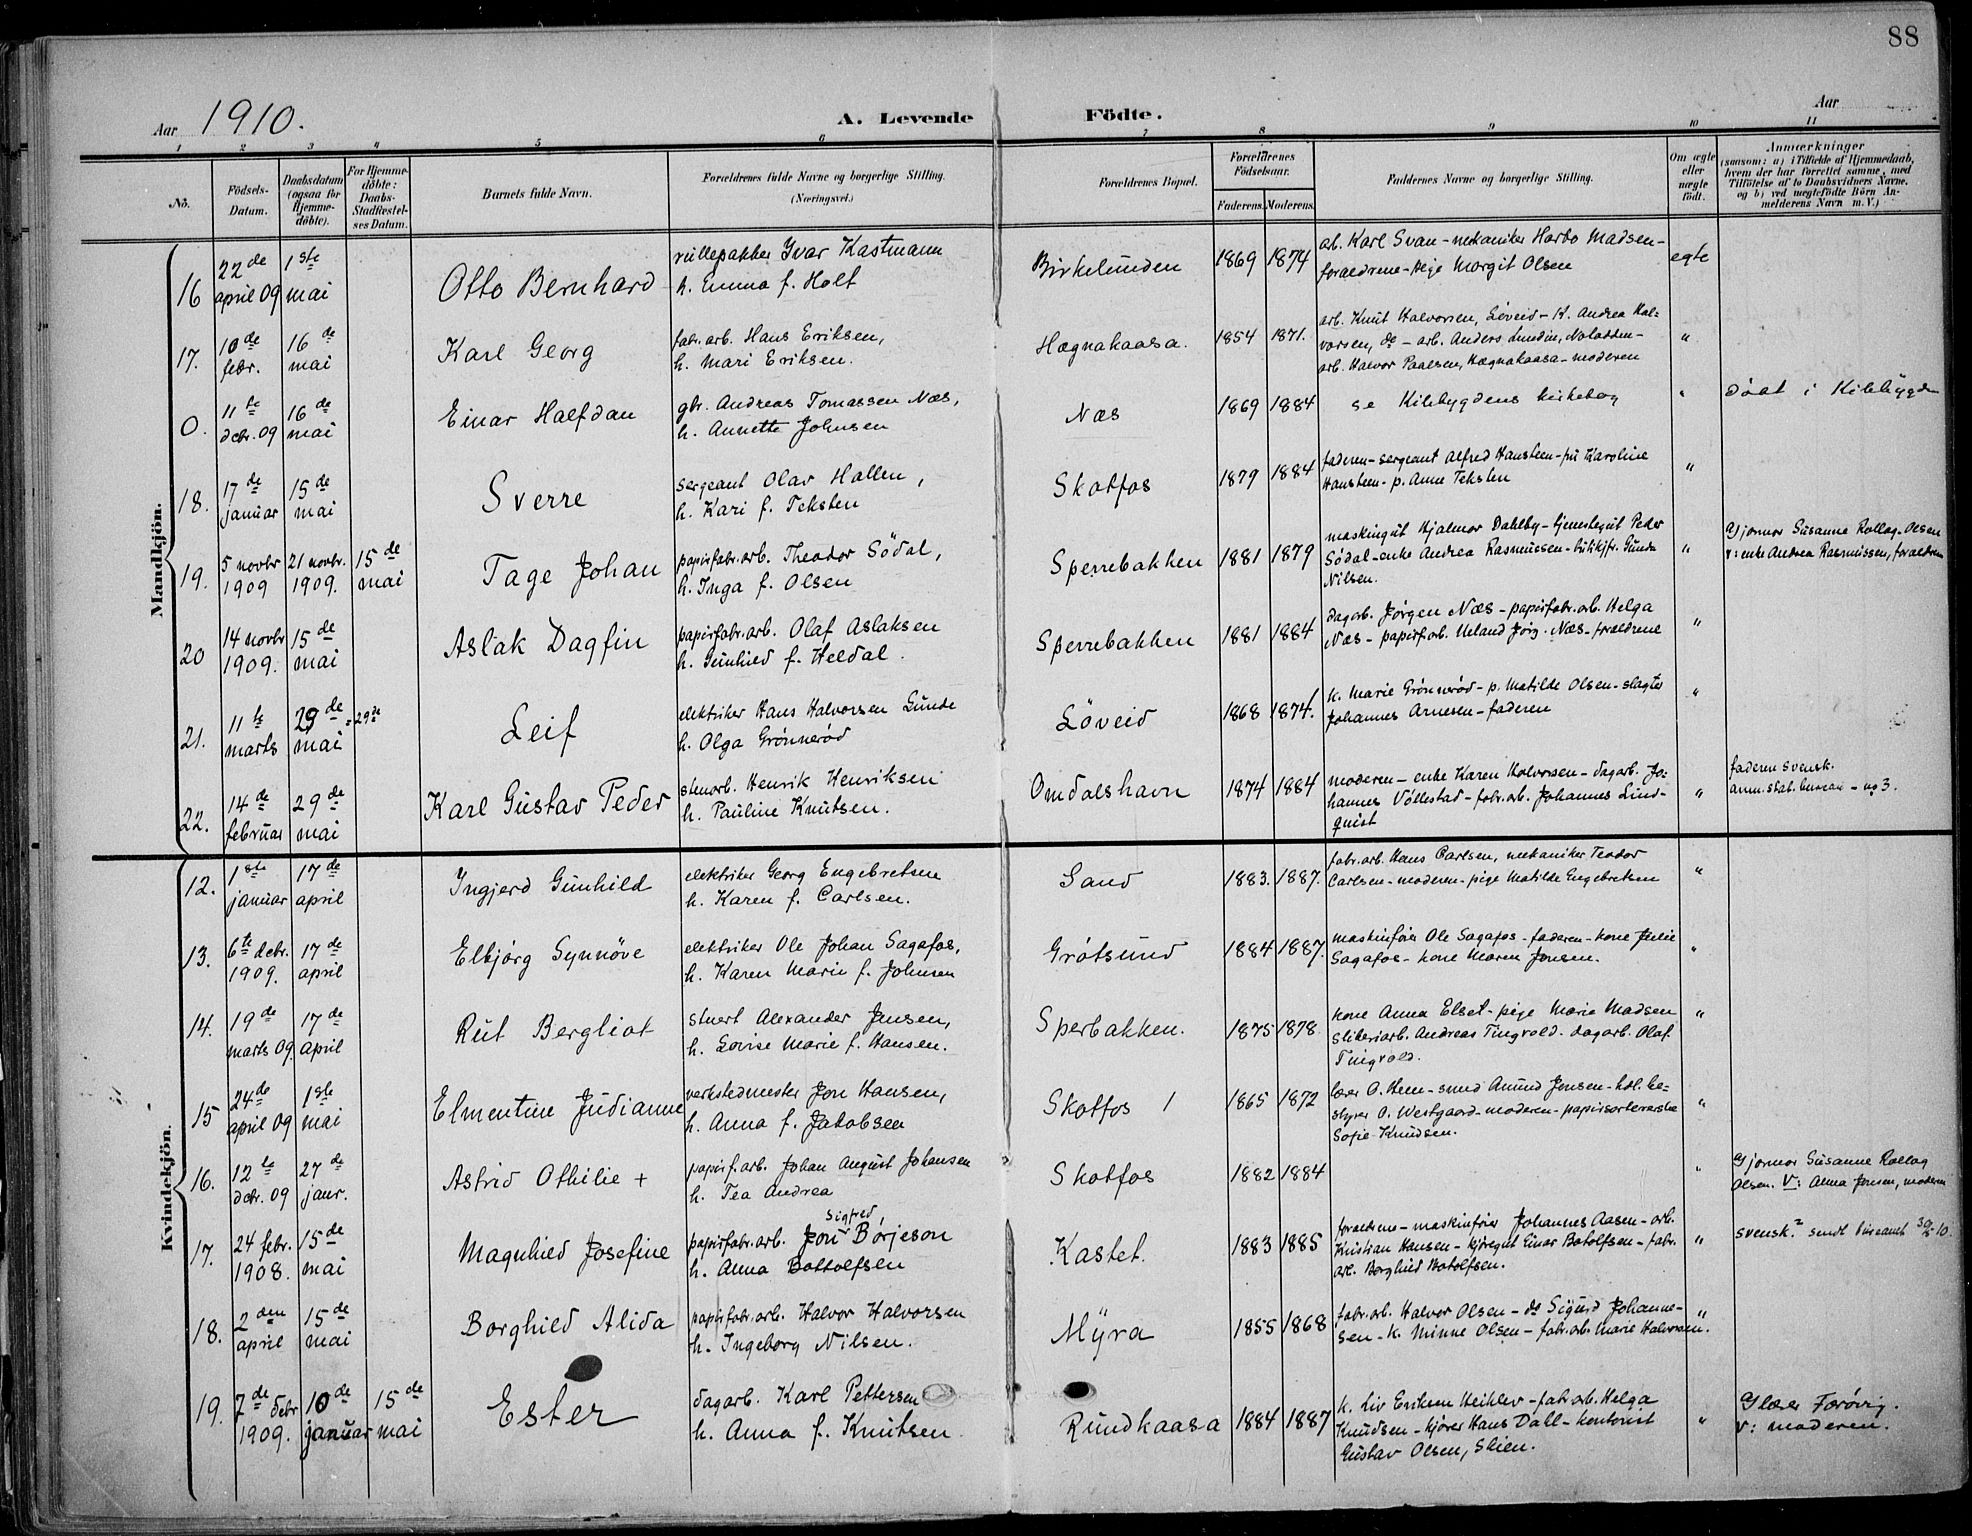 88
Aar 1910.
A. Levende Födte.
Aar
1 2 3 4 5 6 7 8 9 10 11
No.
Födsels-Datum.
Daabsdatum (ogsaa for Hjemme-döbte).
For Hjemme-döbte: Daabs-Stadfæstel-ses Datum.
Barnets fulde Navn.
Forældrenes fulde Navne og borgerlige Stilling. (Næringsvei.)
Forældrenes Bopæl.
Forældrenes Födselsaar.
Faderens. Moderens.
Faddernes Navne og borgerlige Stilling.
Om ægte eller uægte födt.
Anmærkninger
(saasom: a) i Tilfælde af Hjemmedaab, hvem der har forrettet samme, med Tilföielse af to Daabsvidners Navne, og b) ved uægtefödte Börn An-melderens Navn m. V.)
Mandkjön.
16 22de april 09 1ste mai Otto Bernhard rullepakker Yvar Kastmann
h. Emma f. Holt Birkelunden 1869 1874 arb. Karl Svan - mekaniker Harbo Madsen -
forældrene - pige Margit Olsen egte
17. 10de febr. 16de mai Karl Georg fabr. arb. Hans Eriksen,
h. Mari Eriksen. Hægnakaasa. 1854 1871. arb. Knut Halvorsen, Løveid - K. Andrea Hal=
vorsen, do - arb. Anders Lundin, Notodden -
arb. Halvor Paalsen, Hægnakaasa - moderen "
0. 11te dcbr. 09 16de mai Einar Halfdan gbr. Andreas Tomassen Næs,
h. Annette Johnsen Næs 1869 1884 se Kilebygdens kirkebog " døbt i Kilebygden
18. 17de januar 15de mai Sverre sergeant Olav Hallen,
h. Kari f. Teksten Skotfos 1879 1884 faderen - sergeant Alfred Hansteen - fru Karoline
Hansteen - p. Anne Teksten "
19. 5 novbr 1909 21 novbr. 1909. 15de mai Tage Johan papirfabr. arb. Theodor Södal,
h. Inga f. Olsen Sperrebakken 1881 1879 maskingut Hjalmar Dahlby - tjenestegut Peder
Södal - enke Andrea Rasmussen - butikjfr. Gunda
Nilsen. " Gjormor Susanne Rollag-Olsen
v: enke Andrea Rasmussen, forældrene
20 14 novbr 1909. 15de mai Aslak Dagfin papirfabr. arb. Olaf Aslaksen
h. Gunhild f. Heldal. Sperrebakken 1881 1884 dagarb. Jørgen Næs - papirfabr. arb. Helga
Næs - papirf.arb. Jørg. Næs - forældrene "
21. 11te marts 29de mai = 29de Leif elektriker Hans Halvorsen Gunde
h. Olga Grönneröd Löveid 1868 1874. k. Marie Grönneröd - p. Matilde Olsen - slagter
Johannes Arnesen - faderen "
22. 14de februar 29de mai Karl Gustav Peder stenarb. Henrik Henriksen
h. Pauline Knutsen. Omdalshavn 1874 1884 moderen - enke Karen Halvorsen - dagarb. Jo=
hannes Völlestad - fabr. arb. Johannes Lind-
quist " faderen svensk.
anm. stat. bureau - no 3.
Kvindekjön.
12. 1ste januar 17de april Ingjerd Gunhild elektriker Georg Engebretsen
h. Karen f. Carlsen. Sand 1883. 1887. fabr. arb. Hans Carlsen, mekaniker Teodor
Carlsen - moderen - pige Matilde Engebretsen "
13. 6te dcbr. 1909. 17de april Elbjörg Synnöve elektriker Ole Johan Sagafos,
h. Karen Marie f. Johnsen Grötsund 1884 1887. maskinfører Ole Sagafos - faderen - kone Julie
Sagafos - kone Maren Jensen. "
14. 19de marts 09. 17de april Rut Bergliot stuert Alexander Jansen,
h. Lovise Marie f. Hansen. Sperbakken. 1875 1878 kone Anna Elset - pige Marie Madsen
sliberiarb. Andreas Tingvold. dagarb. Olaf
Tingvold. "
15 24de april 09 1ste mai Elmentine Judianne verkstedmester Jon Hansen,
h. Anna f. Jakobsen Skotfos 1 1865 1872 lærer O. Hem - smed Amund Jensen - hdl. be=
styrer O. Westgaard - moderen - papirsorterske
Sofie Knudsen. "
16. 12te dcbr. 09 27de janr. Astrid Othilie + papirf. arb. Johan August Johansen
h. Tea Andrea Skotfos 1882 1884 " Gjormor Susanne Rollag
Olsen. V: Anna Jensen, moderen
17. 24 febr. 1908. 15de mai Magnhild Josefine papirfabr. arb. Jon Sigfred, Börjeson
h. Anna Bottolfsen Kastet. 1883 1885 forældrene - maskinfører Johannes Aasen - arb.
Kristian Hansen - kjøregut Einar Botolfsen - fabr.
arb. Borghild Botolfsen. " svensk? sendt bureauet 30/5-10.
18. 2den april 15de mai Borghild Alida papirfabr. arb. Halvor Halvorsen
h. Ingeborg Nilsen. Myra 1855 1868 fabr. arb. Halvor Olsen - do Sigurd Johanne-
sen - k. Minne Olsen - fabr. arb. Marie Halvorsen. "
19. 7de debr 1909. 10de januar 15de mai Ester dagarb. Karl Pettersen
h. Anna f. Knutsen. Rundkaasa 1884 1887 k. Liv Eriksen - fabr. arb. Helga
Knudsen - kjører Hans Dall - kontorist
Gustav Olsen, Skien. " Glær Forövrig.
v: moderen.